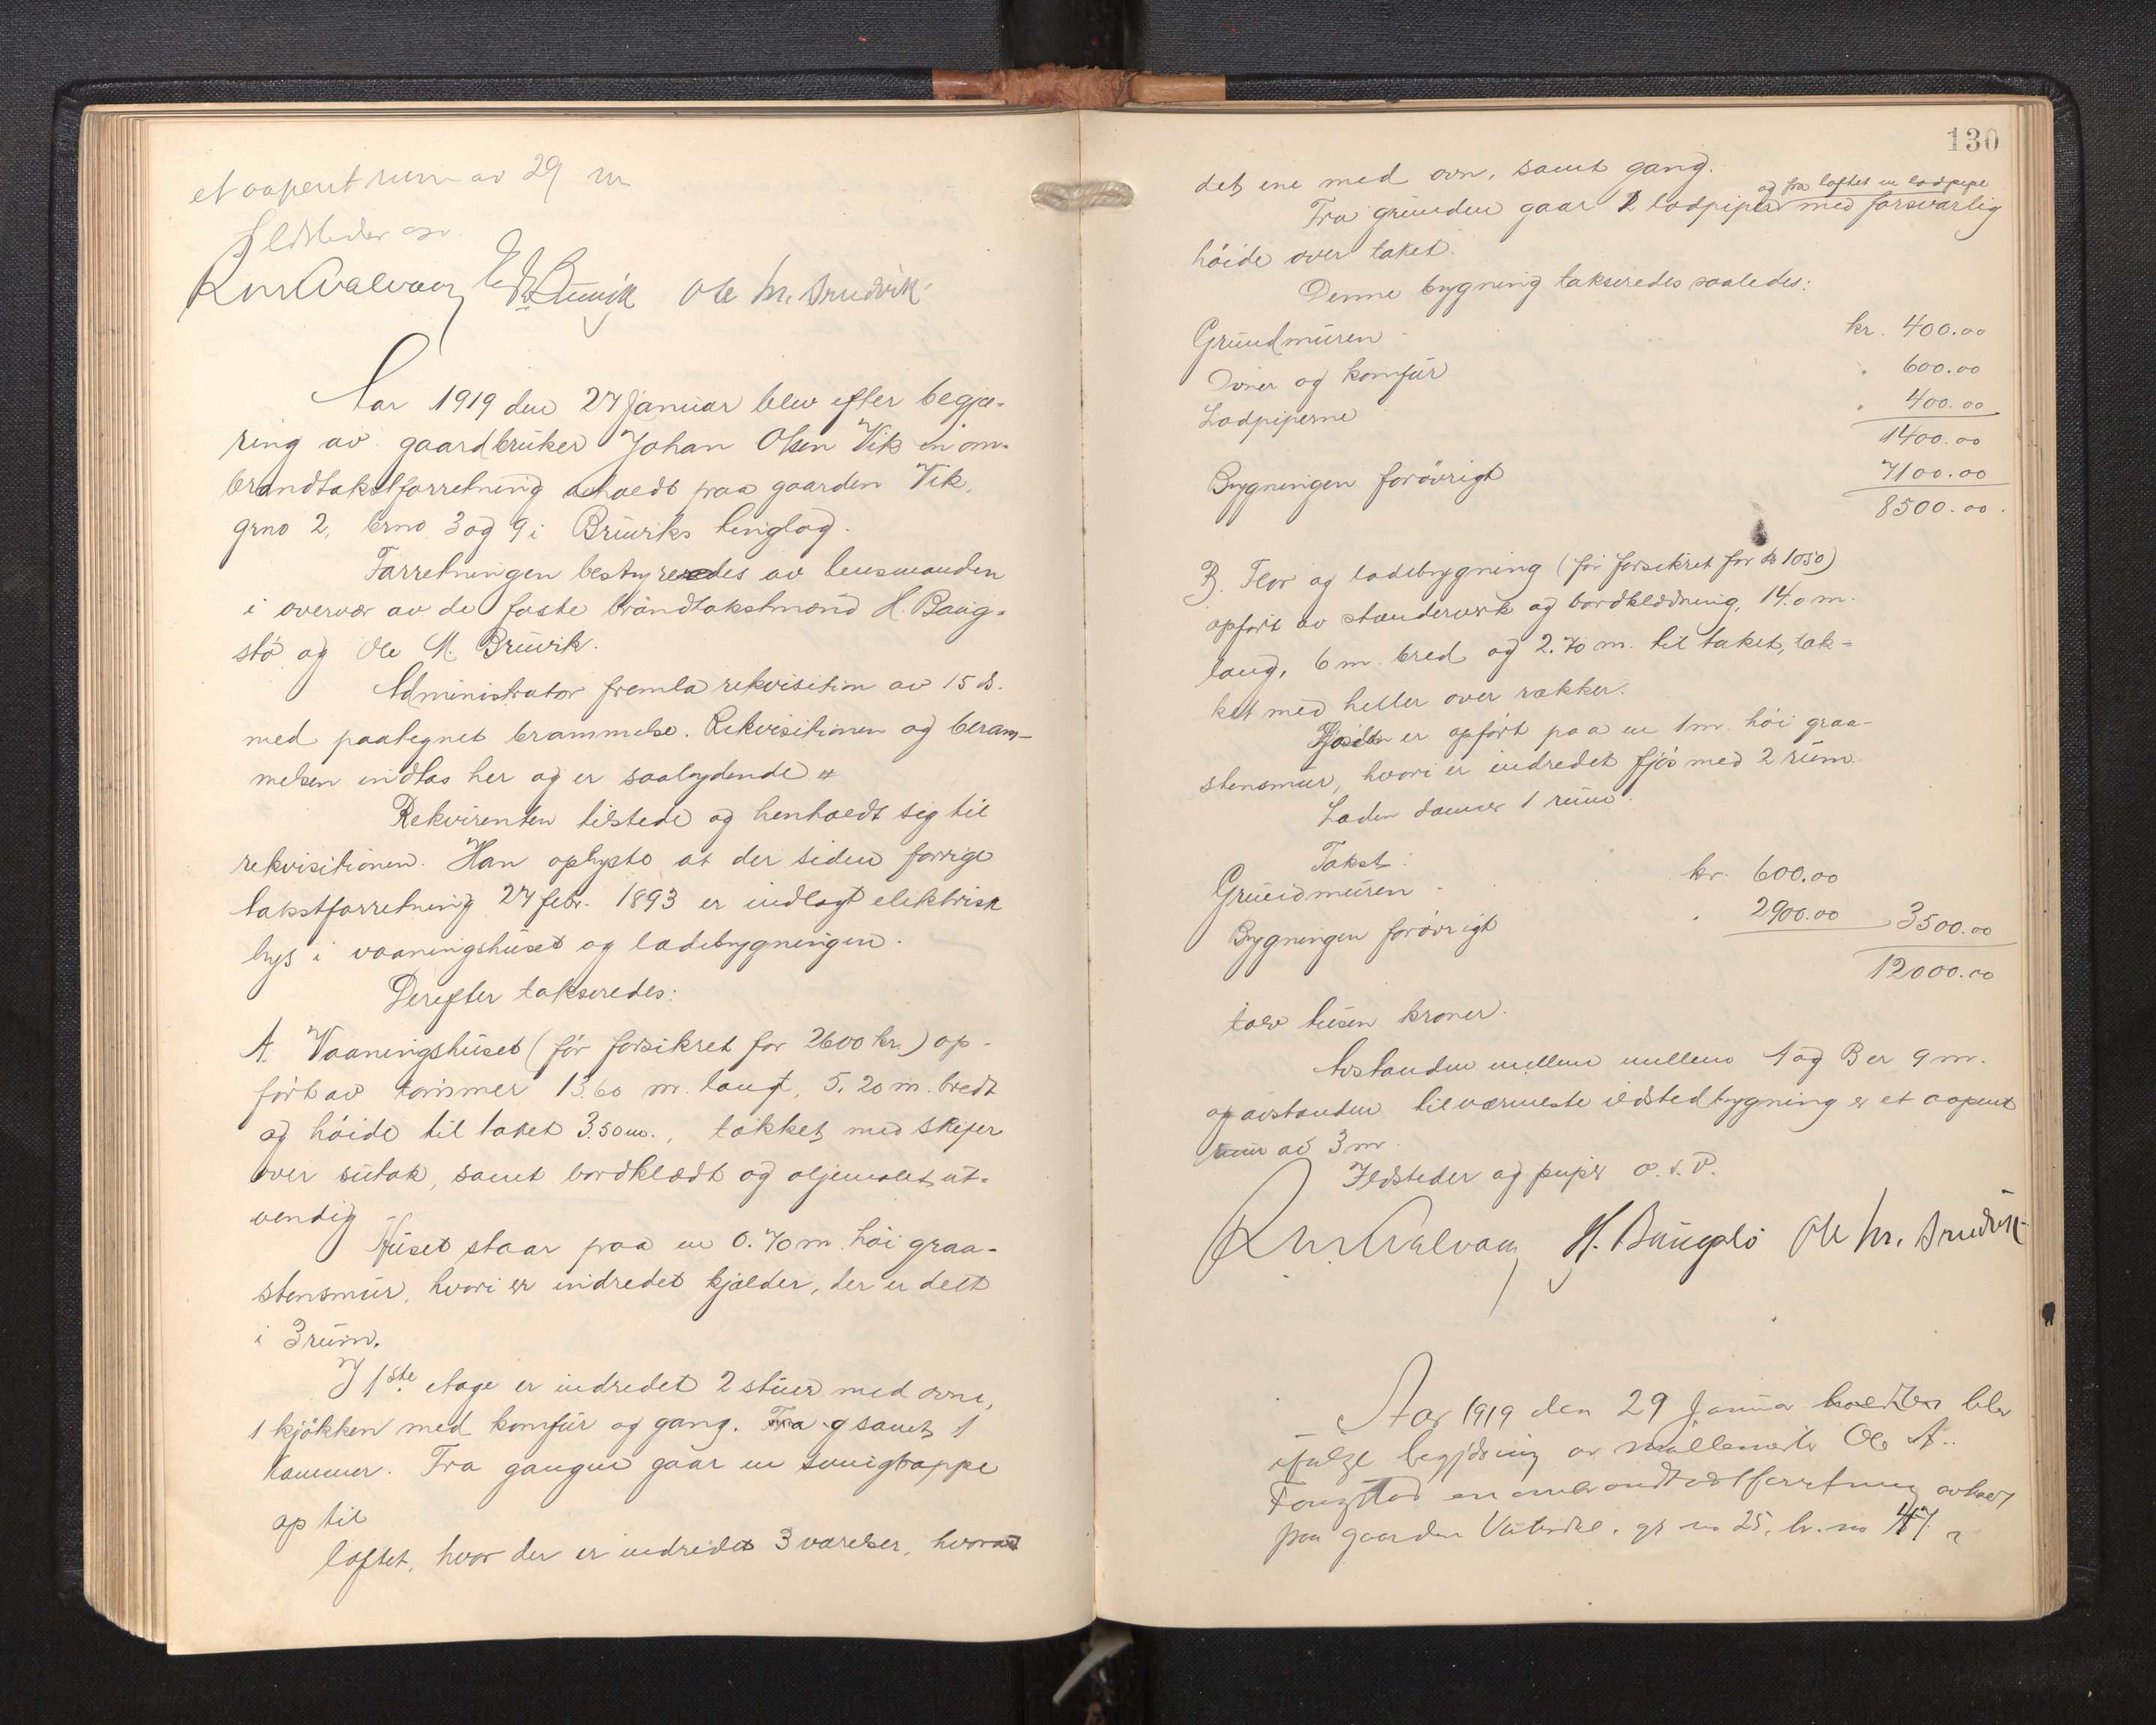 et aapent rum av 29 m
Ildsteder osv.
Ole M. Bruvik
Aar 1919 den 27 Januar blev efter begjæ-
ring av gaardbruker Johan Olsen Vik en om-
brandtakstforretning avholdt paa gaarden Vik,
grno 2, brno 3 og 9 i Bruviks tinglag.
Forretningen bestyredes av lensmanden
i overvær av de faste brandtakstmænd H. Baug-
stø og Ole M. Bruvik.
Administrator fremla rekvisition av 15 ds.
med paategnet berammelse. Rekvisitionen og beram-
melsen indtas her og er saalydende
Rekvirenten tilstede og henholdt sig til
rekvisitionen. Han oplyste at der siden forrige
takstforretning 27 febr. 1893 er indlagt elektrisk
lys i vaaningshuset og ladebygningen.
Derefter takseredes:
A. Vaaningshuset (før forsikret for 2600 kr.) op-
ført av tømmer 13.60 m. langt, 5.20 m. bredt
og høide til taket 3.50 m., tækket med skifer
over sutak, samt bordklædt og oljemalet ut-
vendig
Huset staar paa en 0.70 m. høi graa-
stensmur, hvori er indredet kjælder, der er delt
i 3 rum.
I 1ste etage er indredet 2 stuer med ovne,
1 kjøkken med komfur og gang. Fra g samt 1
kammer. Fra gangen gaar en svingtrappe
op til
loftet, hvor der er indredet 3 værelser, hvorav
130
det ene med ovn, samt gang.
og fra loftet en ladpipe
Fra grunden gaar 2 ladpiper med forsvarlig
høide over taket.
Denne bygning takseredes saaledes:
Grundmuren kr. 400.00
Ovner og komfur " 600.00
Ladpiperne " 400.00
1400.00
Bygningen forøvrigt 7100.00
8500.00.
B. Flor og ladebygning (før forsikret for kr 1050)
opført av stenderverk og bordklædning, 14.0 m.
lang, 6 m. bred og 2.70 m. til taket, tæk-
ket med heller over rækker.
er opført paa en 1 m. høi graa-
stensmur, hvori er indredet fjøs med 2 rum.
Laden danner 1 rum.
Takst:
Grundmuren kr. 600.00
Bygningen forøvrigt " 2900.00 3500.00
12000.00
tolv tusen kroner.
Avstanden mellem mellem A og B er 9 m.
og avstanden til nærmeste ildstedbygning er et aapent
rum av 3 m.
Ildsteder og piper o.s.v.
H. Baugstø Ole M. Bruvik
Aar 1919 den 29 Januar blev
ifølge begjæring av Ole A.
en ombrandtakstforretning avholdt
paa gaarden gr no 25, br. no 47 i